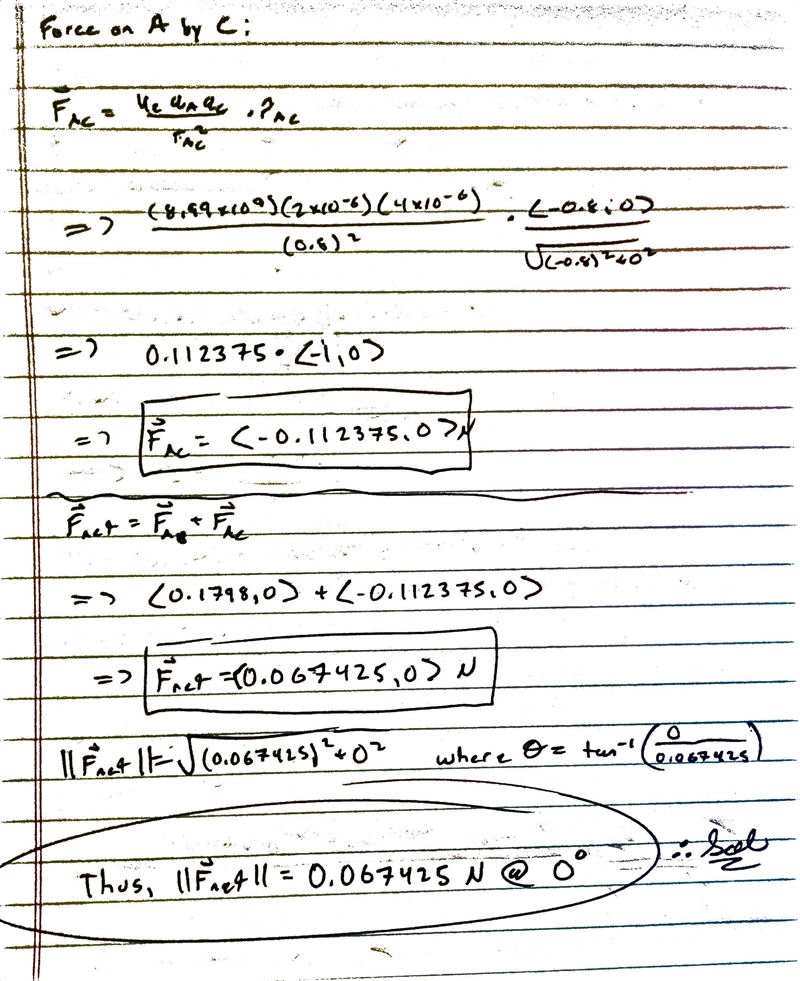 Force on A by C:
F⃗_AC = k_e q_A q_C / r_AC² · r̂_AC
=> (8.99x10⁹)(2x10⁻⁶)(4x10⁻⁶) / (0.8)² · <-0.8, 0> / √((-0.8)²+0²)
=> 0.112375 · <-1, 0>
=> F⃗_AC = <-0.112375, 0> N
F⃗_net = F⃗_AB + F⃗_AC
=> <0.1798, 0> + <-0.112375, 0>
=> F⃗_net = <0.067425, 0> N
||F⃗_net|| = √((0.067425)² + 0²) where θ = tan⁻¹(0 / 0.067425)
Thus, ||F⃗_net|| = 0.067425 N @ 0° ∴ Sol